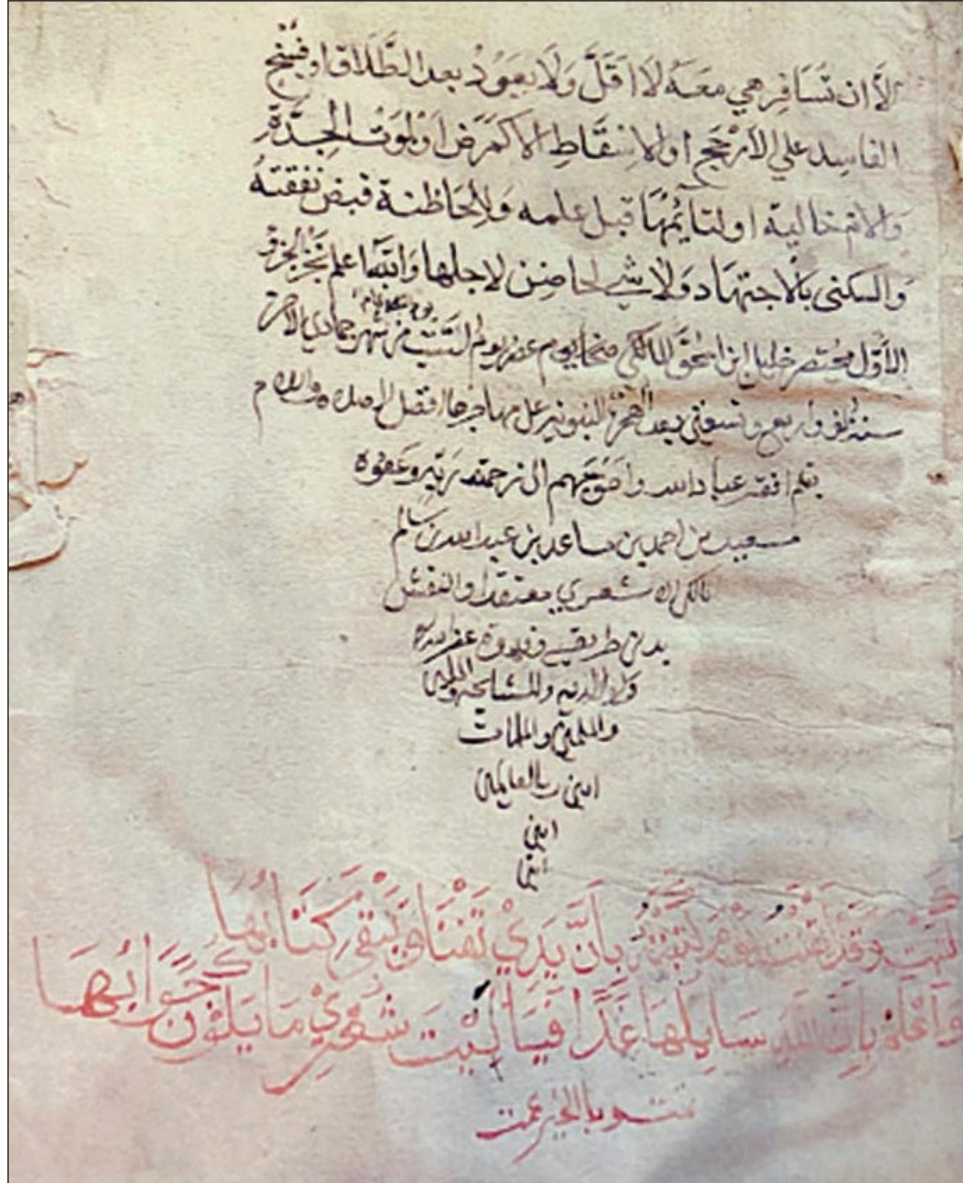 الاَّ ان تُسَافِر هي معَهُ لا اقَلَّ وَلا يعَوُدُ بعد الطَّلَاق او فسْخ
الفاسِد علي الأرْجَح او الاسْقَاطِ الا كمَرَض اوْ لموَتْ الجدّة
وَالام خالية او لتايُمهَا قبل علمه وَللحَاظنة قبض نفقتهُ
وَالسكنى بالاجتهَاد وَلا شي لحاضِن لاجلهَا وَانتهَا علم تخ الجزو
الاوّل مختصر خليل ابن اسحق المالكي ضحا يوم عصر يوم السَّبت من شهر جمادي الاخرة
سنة الف واربع وتسعني بعد الهجرة النبوية على مهاجرها افضل الصلاه والسلام
بقلم افقر عباد الله واحْوَجهم الى رحمة ربّه وعفوه
سعيد بن احمد بن ساعد بن عبد الله بن سالم
مالكي الاشعري معتقدا والنقش
بدني طريقة وقدوة غفر الله له
ولوالديه والمشايخه والمسلمين
والمسلمات
امين رب العالمين
امين
امين
كتبت وقد ايْقنْتُ يوْم كتبْتُ بِأنَّ يَدِيْ تَفْنَا وَيَبْقَى كِتَابُهَا
وَاَعْلَمُ بِاَنَّ اللهَ سَايِلُهَا غَدًا فَيَا لَيْتَ شِعْرِيْ مَا يَكُوْن جَوَابُهَا
تمت وبالخير عمت